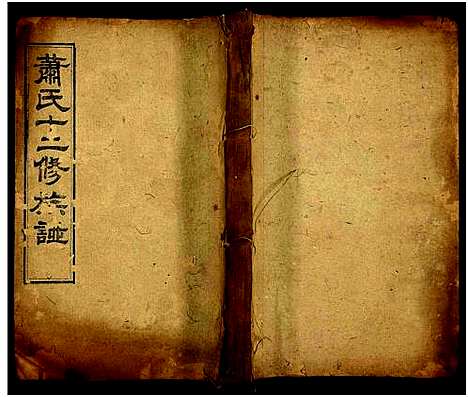 蕭氏十二修族譜